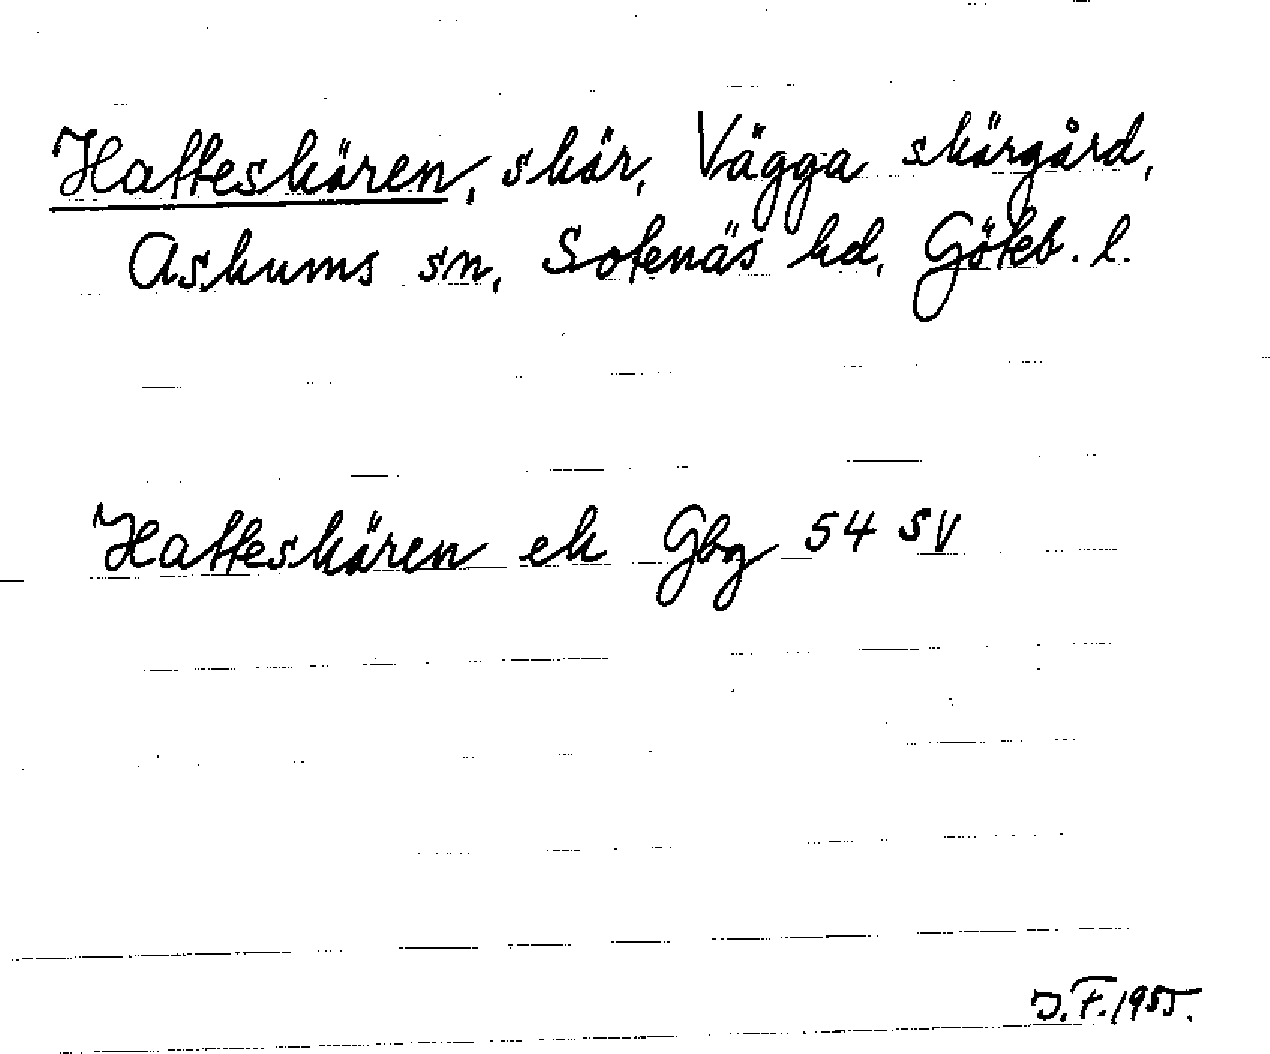 Hatteskären, skär, Vägga skärgård,
Askums sn, Sotenäs hd, Göteb. l.
Hatteskären ek Gbg 54 SV
J.F. 1955.